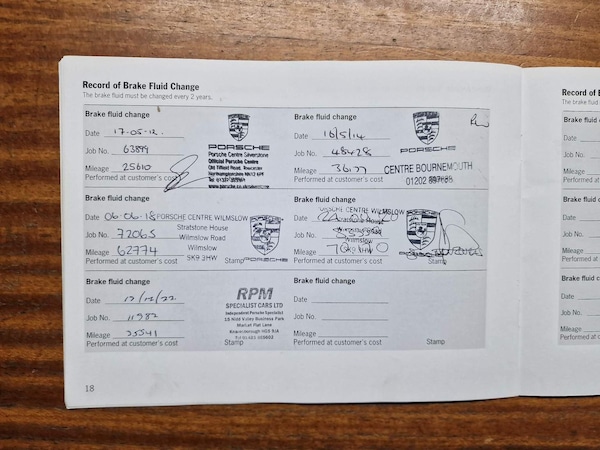 Record of Brake Fluid Change
The brake fluid must be changed every 2 years.
Brake fluid change
Date 17-05-12.
Job No. 63899
Mileage 25610
Performed at customer's cost
PORSCHE
Porsche Centre Silverstone
Official Porsche Centre
Old Tiffield Road, Towcester
Northamptonshire NN12 6PF
www.porsche.co.uk/silverstone
Brake fluid change
Date 16/5/14
Job No. 48428
Mileage
Performed at customer's cost
PORSCHE
CENTRE BOURNEMOUTH
01202
Brake fluid change
Date 06-06-18
Job No. 72065
Mileage 62774
Performed at customer's cost
PORSCHE CENTRE WILMSLOW
Stratstone House
Wilmslow Road
Wilmslow
SK9 3HW
Stamp
PORSCHE
Brake fluid change
Date
Job No.
Mileage
Performed at customer's cost
PORSCHE CENTRE WILMSLOW
Stratstone House
Wilmslow
Stamp
Brake fluid change
Date
Job No. 11982
Mileage
Performed at customer's cost
RPM
SPECIALIST CARS LTD
Independent Porsche Specialist
Market Flat Lane
Stamp
Brake fluid change
Date
Job No.
Mileage
Performed at customer's cost
Stamp
18
Record of B
The brake fluid
Brake fluid c
Date
Job No.
Mileage
Performed at
Brake fluid c
Date
Job No.
Mileage
Performed at c
Brake fluid ch
Date
Job No.
Mileage
Performed at c